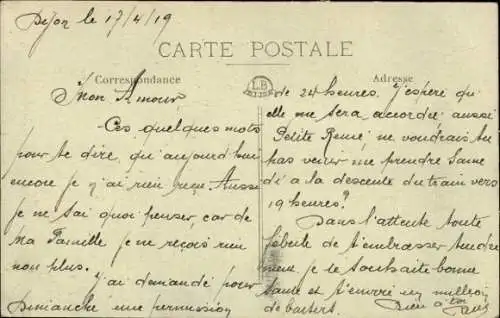 Dijon le 17/4/19
CARTE POSTALE
Correspondance
LB
Adresse
Mon Amour
Ces quelques mots
pour te dire, qu'aujourd'hui
encore je n'ai rien reçu. Aussi
je ne sai quoi penser, car de
Ma Famille je ne reçois rien
non plus.
J'ai demandé pour
Dimanche une permission
de 24 heures. J'espère qu'
elle me sera accordée aussi
Petite Renée, ne voudrais tu
pas venir me prendre Same
di a la descente du train vers
19 heures?
Dans l'attente toute
fébrile de t'embrasser tendre
ment je te souhaite bonne
Santé et t'envoie un million
de baisers. Bien à toi